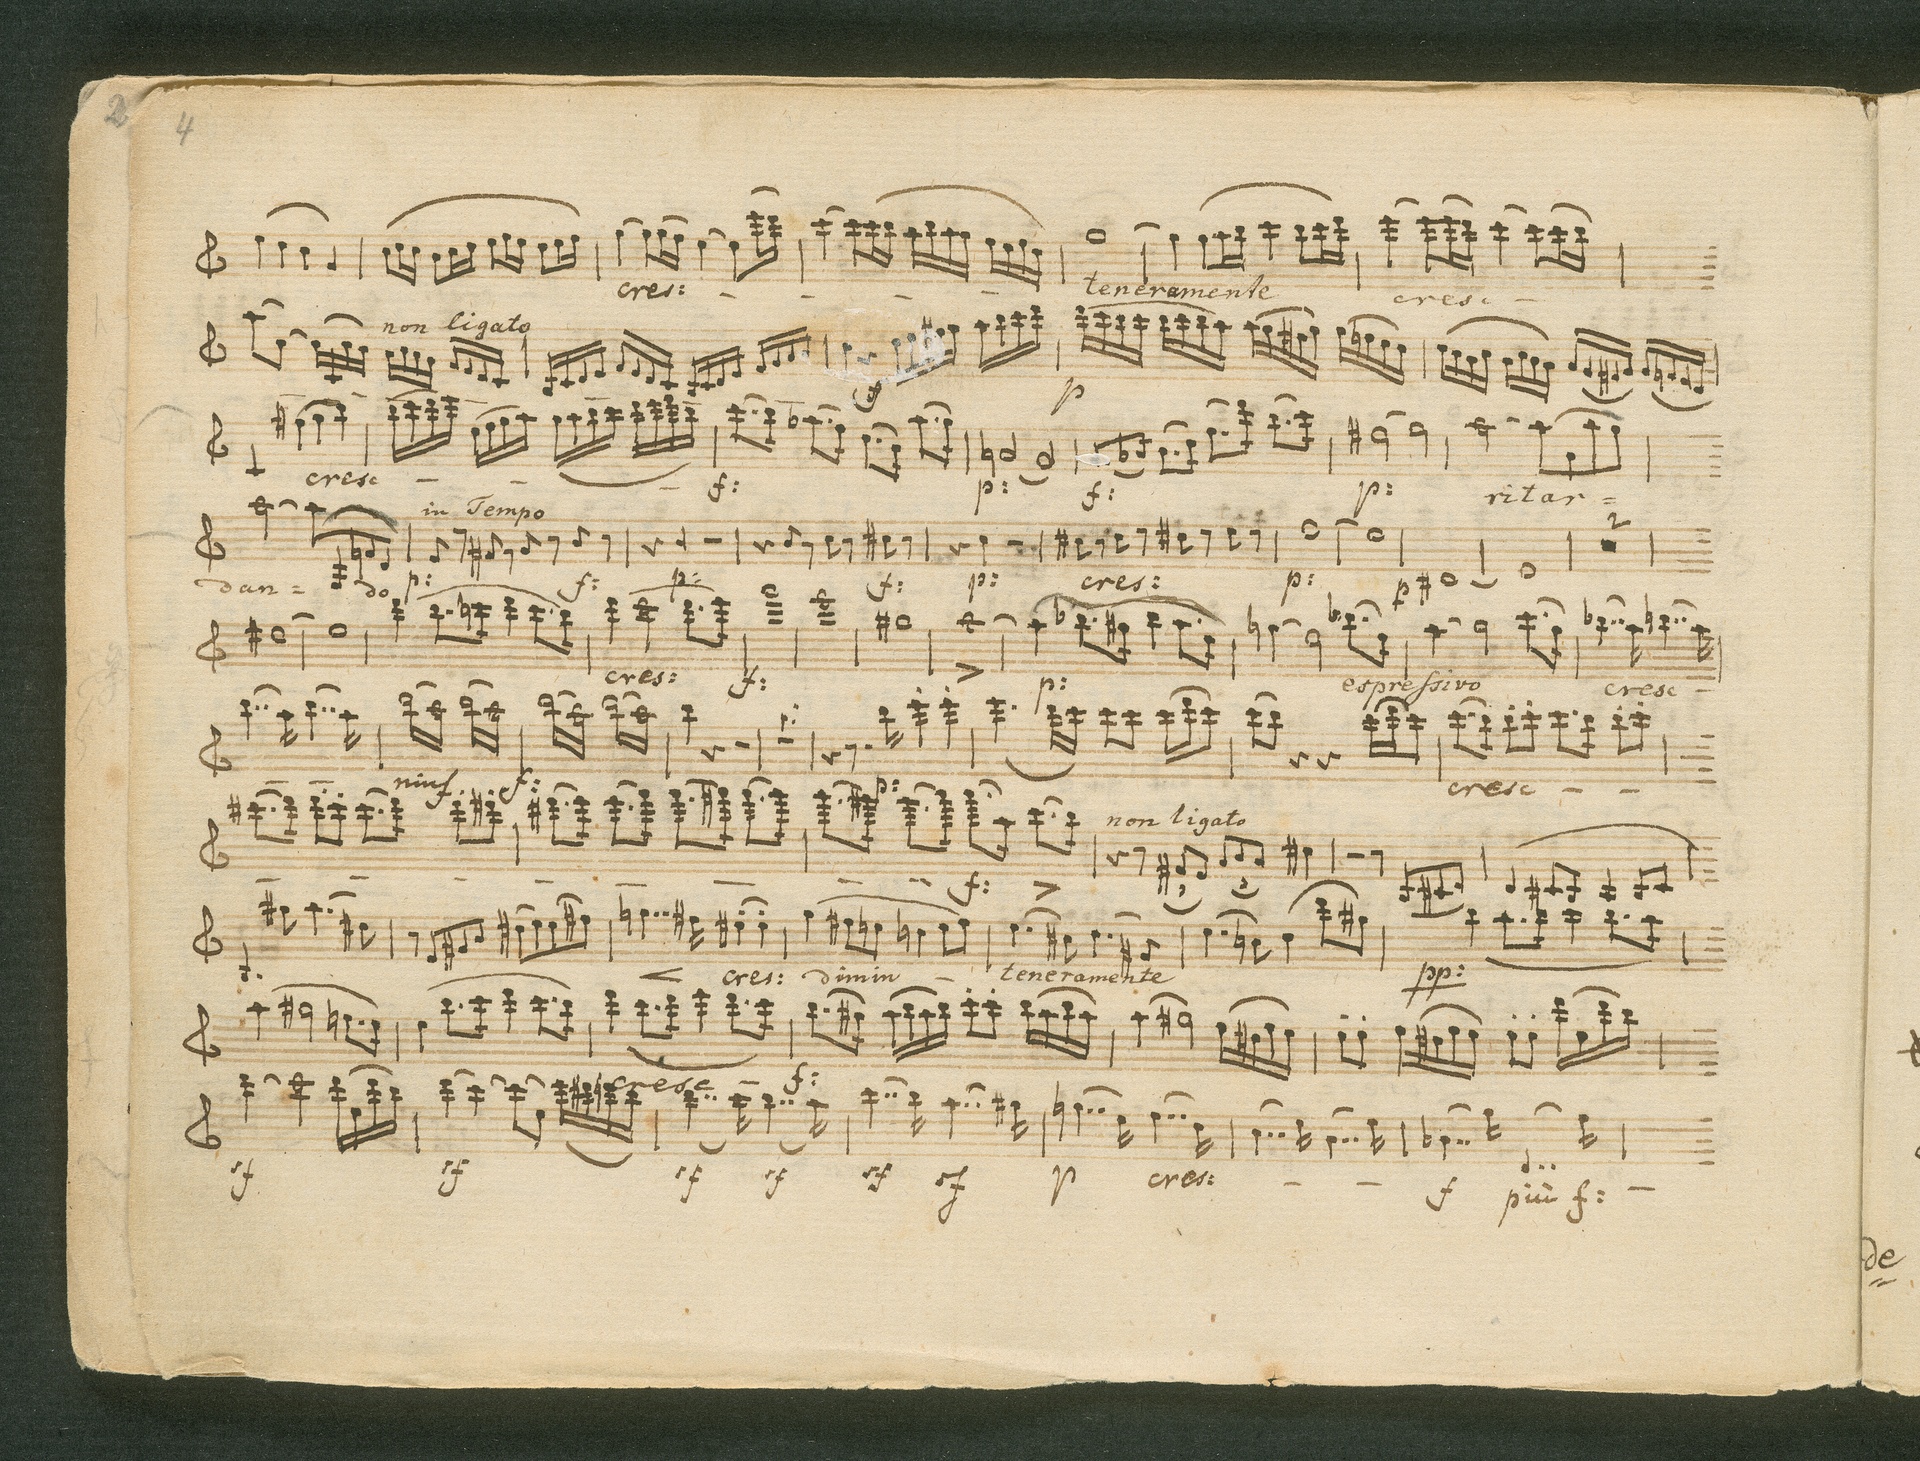 2
4
cres: teneramente cresc
non ligato
p
cresc f: p: f: p: ritar =
in Tempo
dan = do p: f: p: f: p: cres: p: p 2
cres: f: p: espressivo cresc
cresc
f: p:
non ligato
f:
cres: dimin teneramente pp:
cresc f:
sf sf sf sf sf sf p cres: f più f:
de